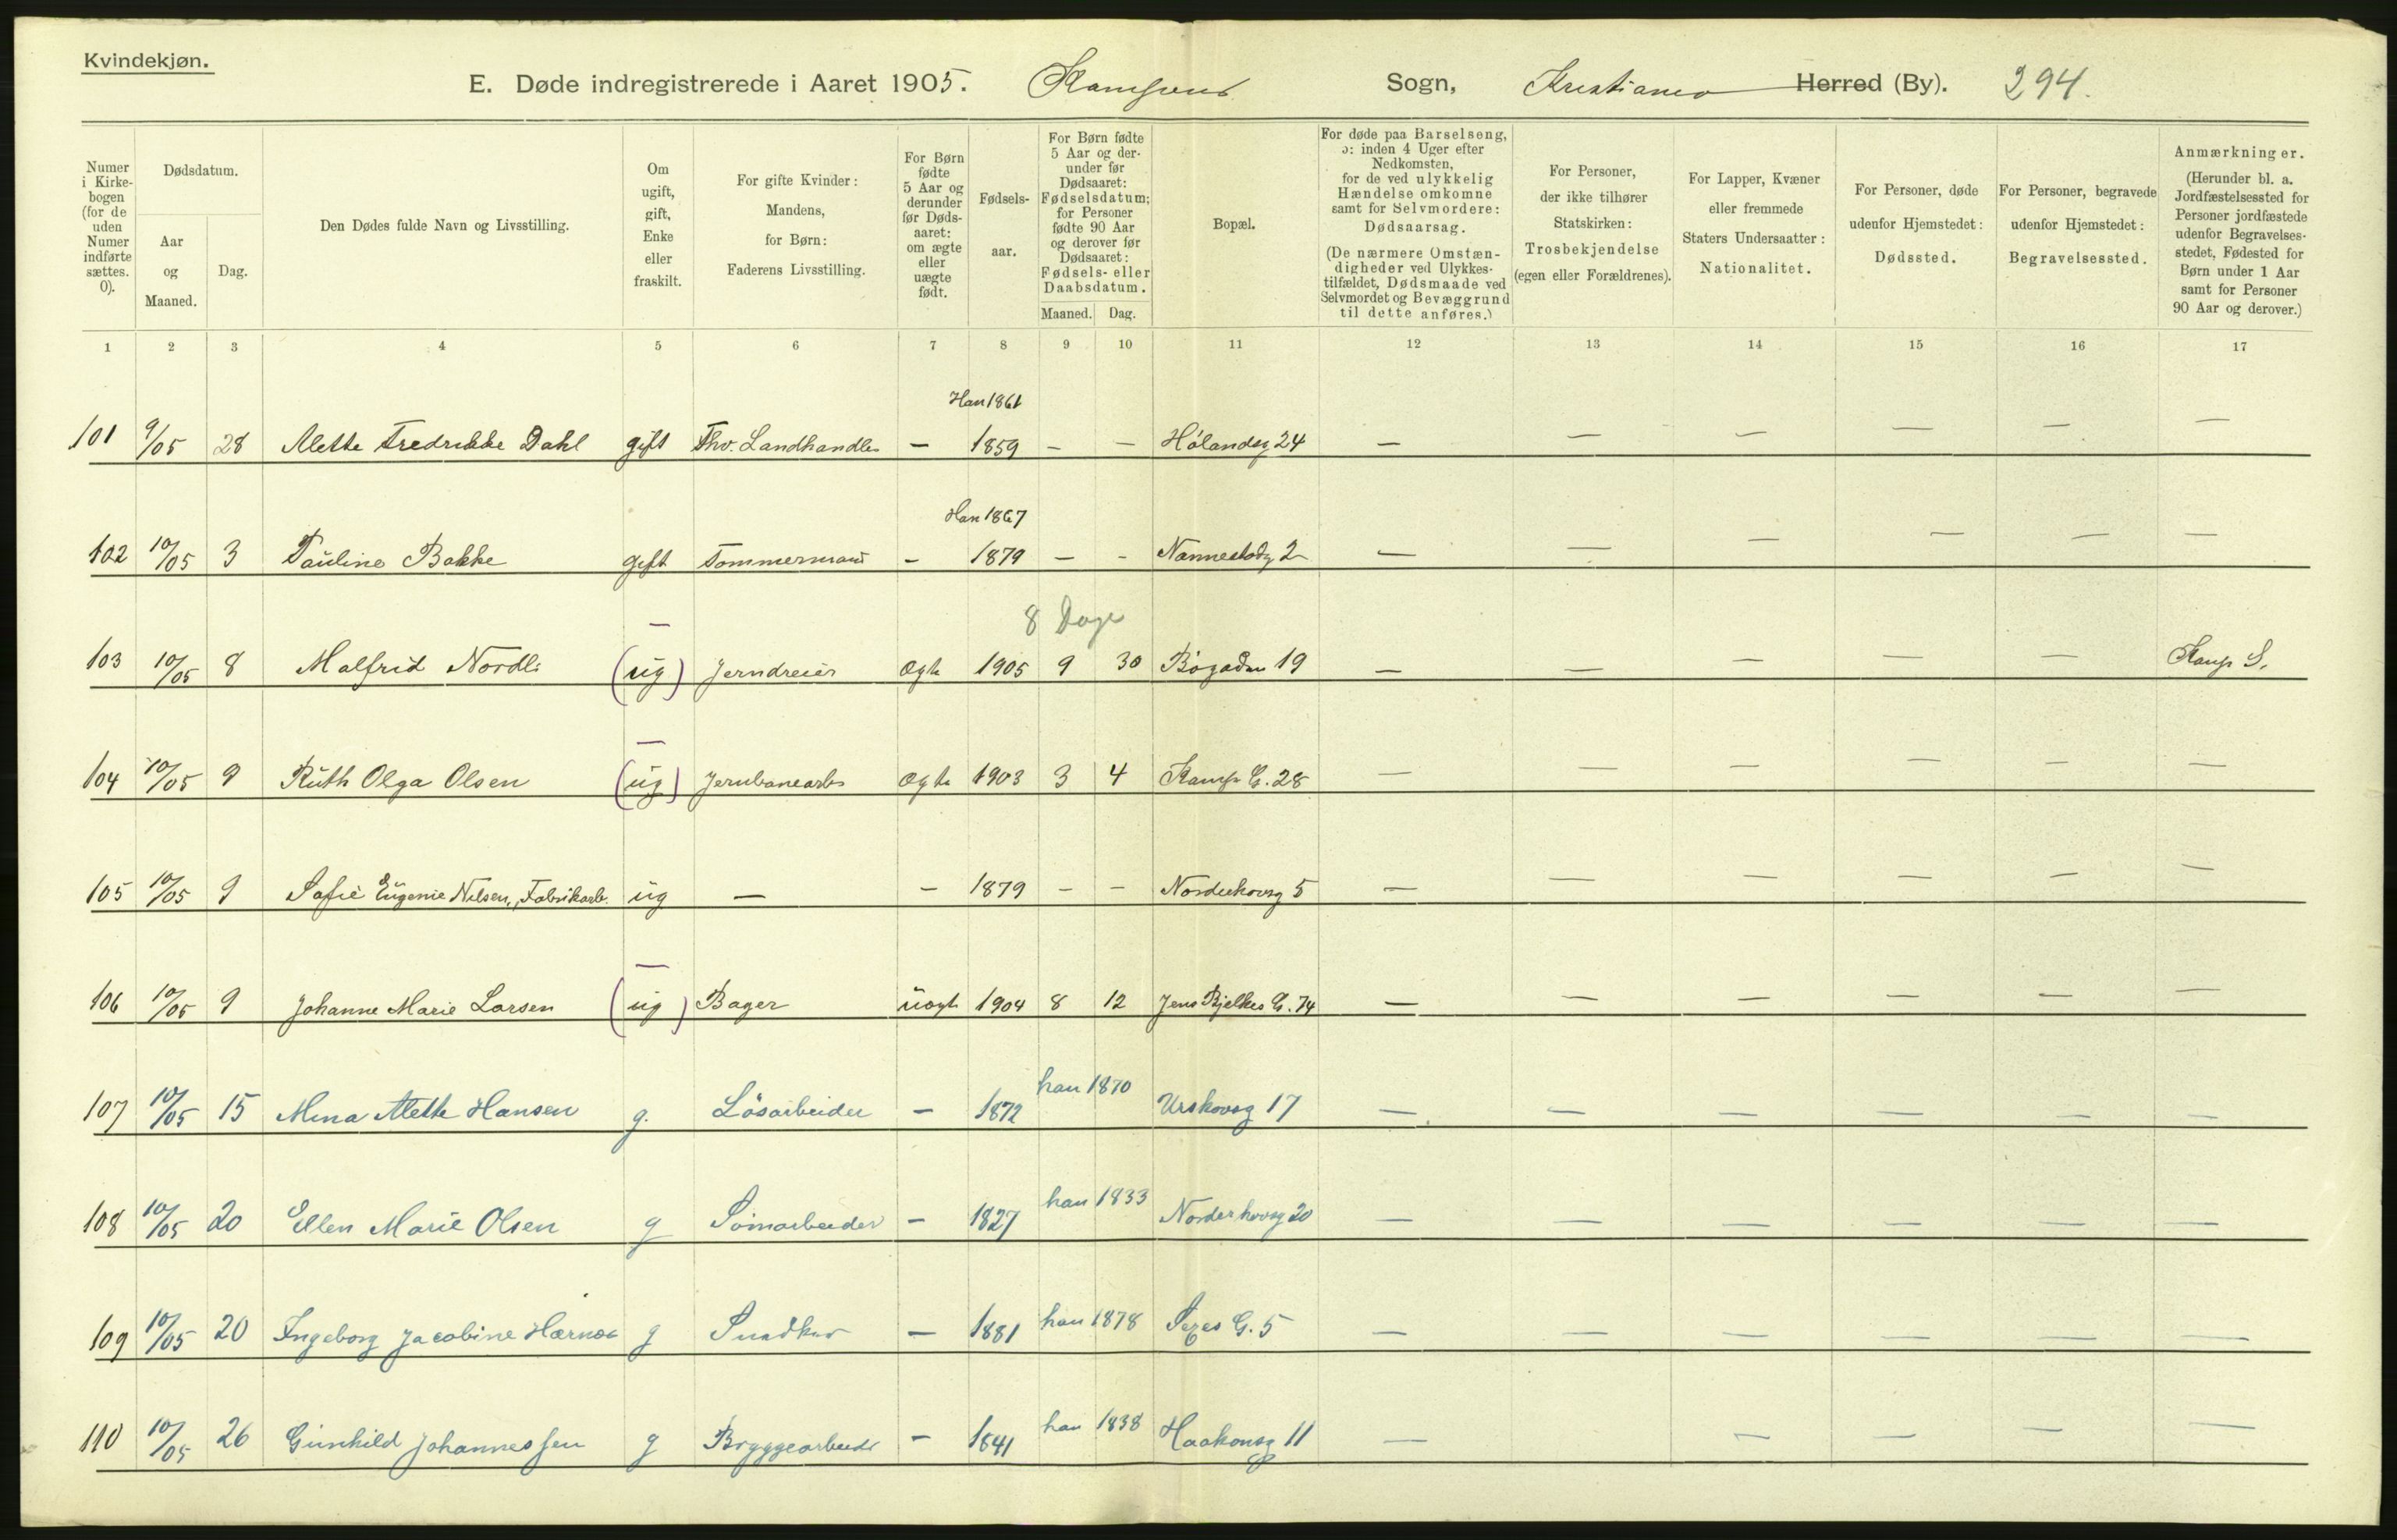 Kvindekjøn.
E. Døde indregistrerede i Aaret 1905. Kampens Sogn, Kristiania Herred (By). 294.
Numer i Kirkebogen (for de uden Numer indførte sættes. 0).
Dødsdatum.
Aar og Maaned.
Dag.
Den Dødes fulde Navn og Livsstilling.
Om ugift, gift, Enke eller fraskilt.
For gifte Kvinder: Mandens, for Børn: Faderens Livsstilling.
For Børn fødte 5 Aar og derunder før Dødsaaret: om ægte eller uægte født.
Fødselsaar.
For Børn fødte 5 Aar og derunder før Dødsaaret: Fødselsdatum; for Personer fødte 90 Aar og derover før Dødsaaret: Fødsels- eller Daabsdatum.
Maaned. Dag.
Bopæl.
For døde paa Barselseng, ɔ: inden 4 Uger efter Nedkomsten, for de ved ulykkelig Hændelse omkomne samt for Selvmordere: Dødsaarsag.
(De nærmere Omstændigheder ved Ulykkestilfældet, Dødsmaade ved Selvmordet og Bevæggrund til dette anføres.)
For Personer, der ikke tilhører Statskirken: Trosbekjendelse (egen eller Forældrenes).
For Lapper, Kvæner eller fremmede Staters Undersaatter: Nationalitet.
For Personer, døde udenfor Hjemstedet: Dødssted.
For Personer, begravede udenfor Hjemstedet: Begravelsessted.
Anmærkninger.
(Herunder bl. a. Jordfæstelsessted for Personer jordfæstede udenfor Begravelsesstedet, Fødested for Børn under 1 Aar samt for Personer 90 Aar og derover.)
1 2 3 4 5 6 7 8 9 10 11 12 13 14 15 16 17
Han 1861
101 9/05 28 Alette Fredrikke Dahl gift Fhv. Landhandler — 1859 — — Hölandsg 24 — — — — — —
Han 1867
102 10/05 3 Pauline Bakke gift Tömmermand — 1879 — — Nannestadg 2 — — — — — —
8 Dage
103 10/05 8 Malfrid Nordli (ug) Jerndreier Ægte 1905 9 30 Bögaden 19 — — — — — Kamp S.
104 10/05 9 Ruth Olga Olsen (ug) Jernbanearb Ægte 1903 3 4 Kamp G. 28 — — — — — —
105 10/05 9 Sofie Eugenie Nilsen, Fabrikarb. ug — — 1879 — — Norderhovsg 5 — — — — — —
106 10/05 9 Johanne Marie Larsen (ug) Bager Uægt 1904 8 12 Jens Bjelkes G. 74 — — — — — —
han 1870
107 10/05 15 Mina Alette Hansen g. Lösarbeider — 1872 Urskovsg 17 — — — — — —
han 1833
108 10/05 20 Ellen Marie Olsen g — 1827 Norderhovsg 20 — — — — — —
109 10/05 20 Ingeborg Jacobine g Snedker — 1881 han 1878 G. 5 — — — — — —
110 10/05 26 Gunhild Johannessen g Bryggearbeid — 1841 han 1838 Haakonsg 11 — — — — —